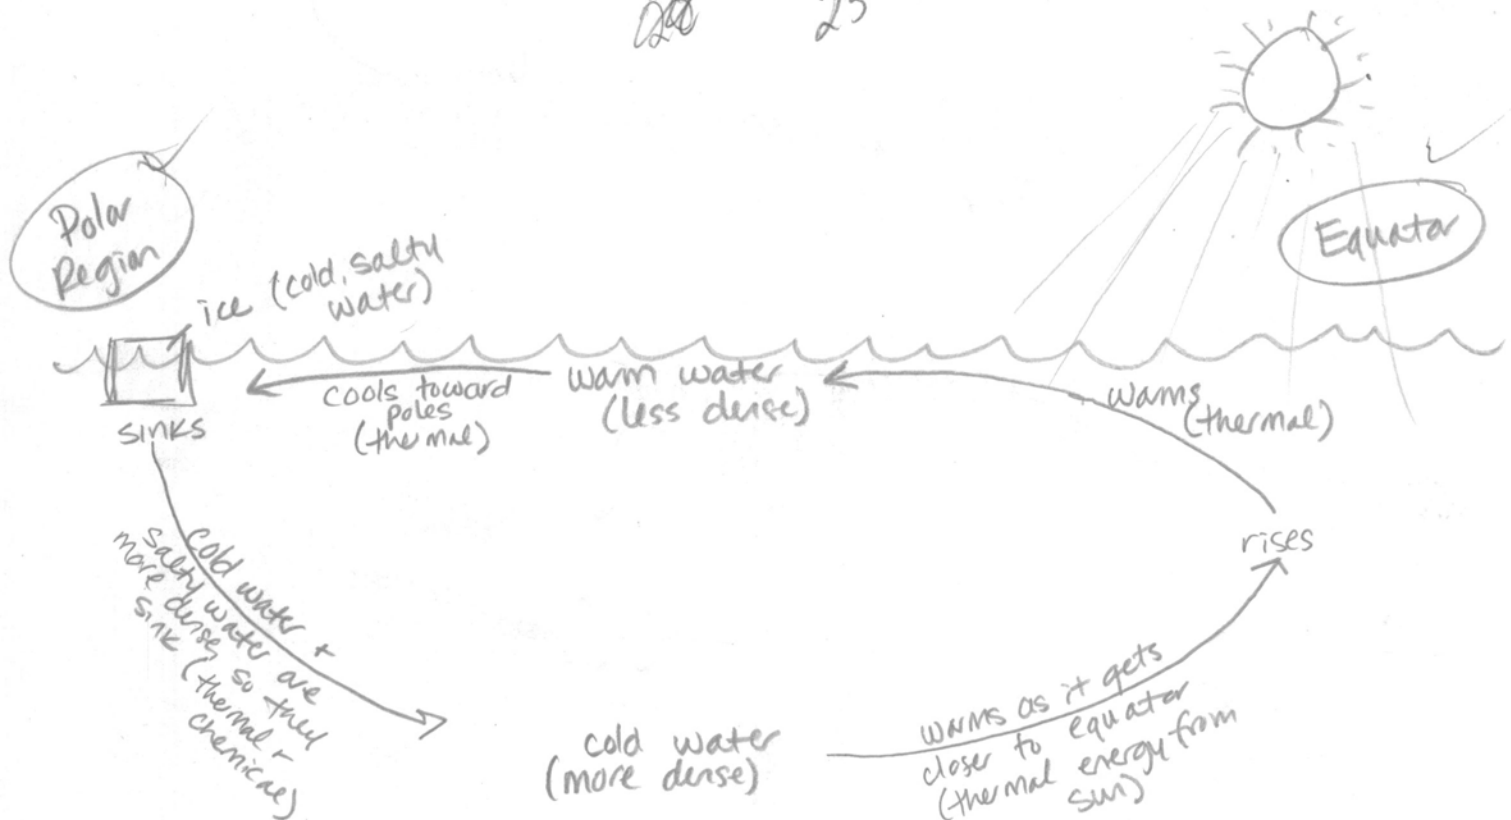 23
Polar
Region
Equator
ice (cold, salty
water)
cools toward
poles
(thermal)
warm water
(less dense)
warms
(thermal)
sinks
rises
cold water +
salty water are
more dense, so they
sink (thermal +
chemical)
cold water
(more dense)
warms as it gets
closer to equator
(thermal energy from
sun)